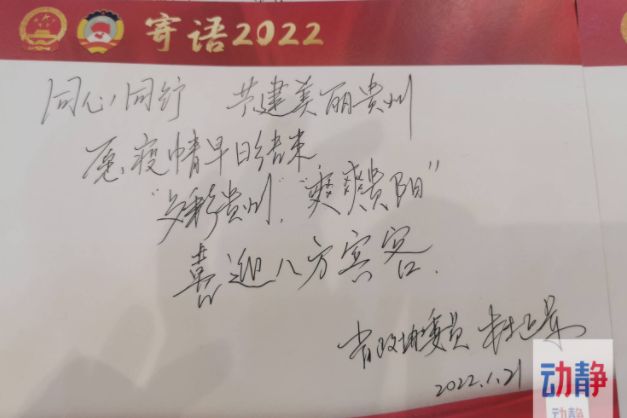 寄语2022
同心同行 共建美丽贵州
愿疫情早日结束
“多彩贵州”，“爽爽贵阳”
喜迎八方宾客.
省政协委员
2022.1.21
动静
动静